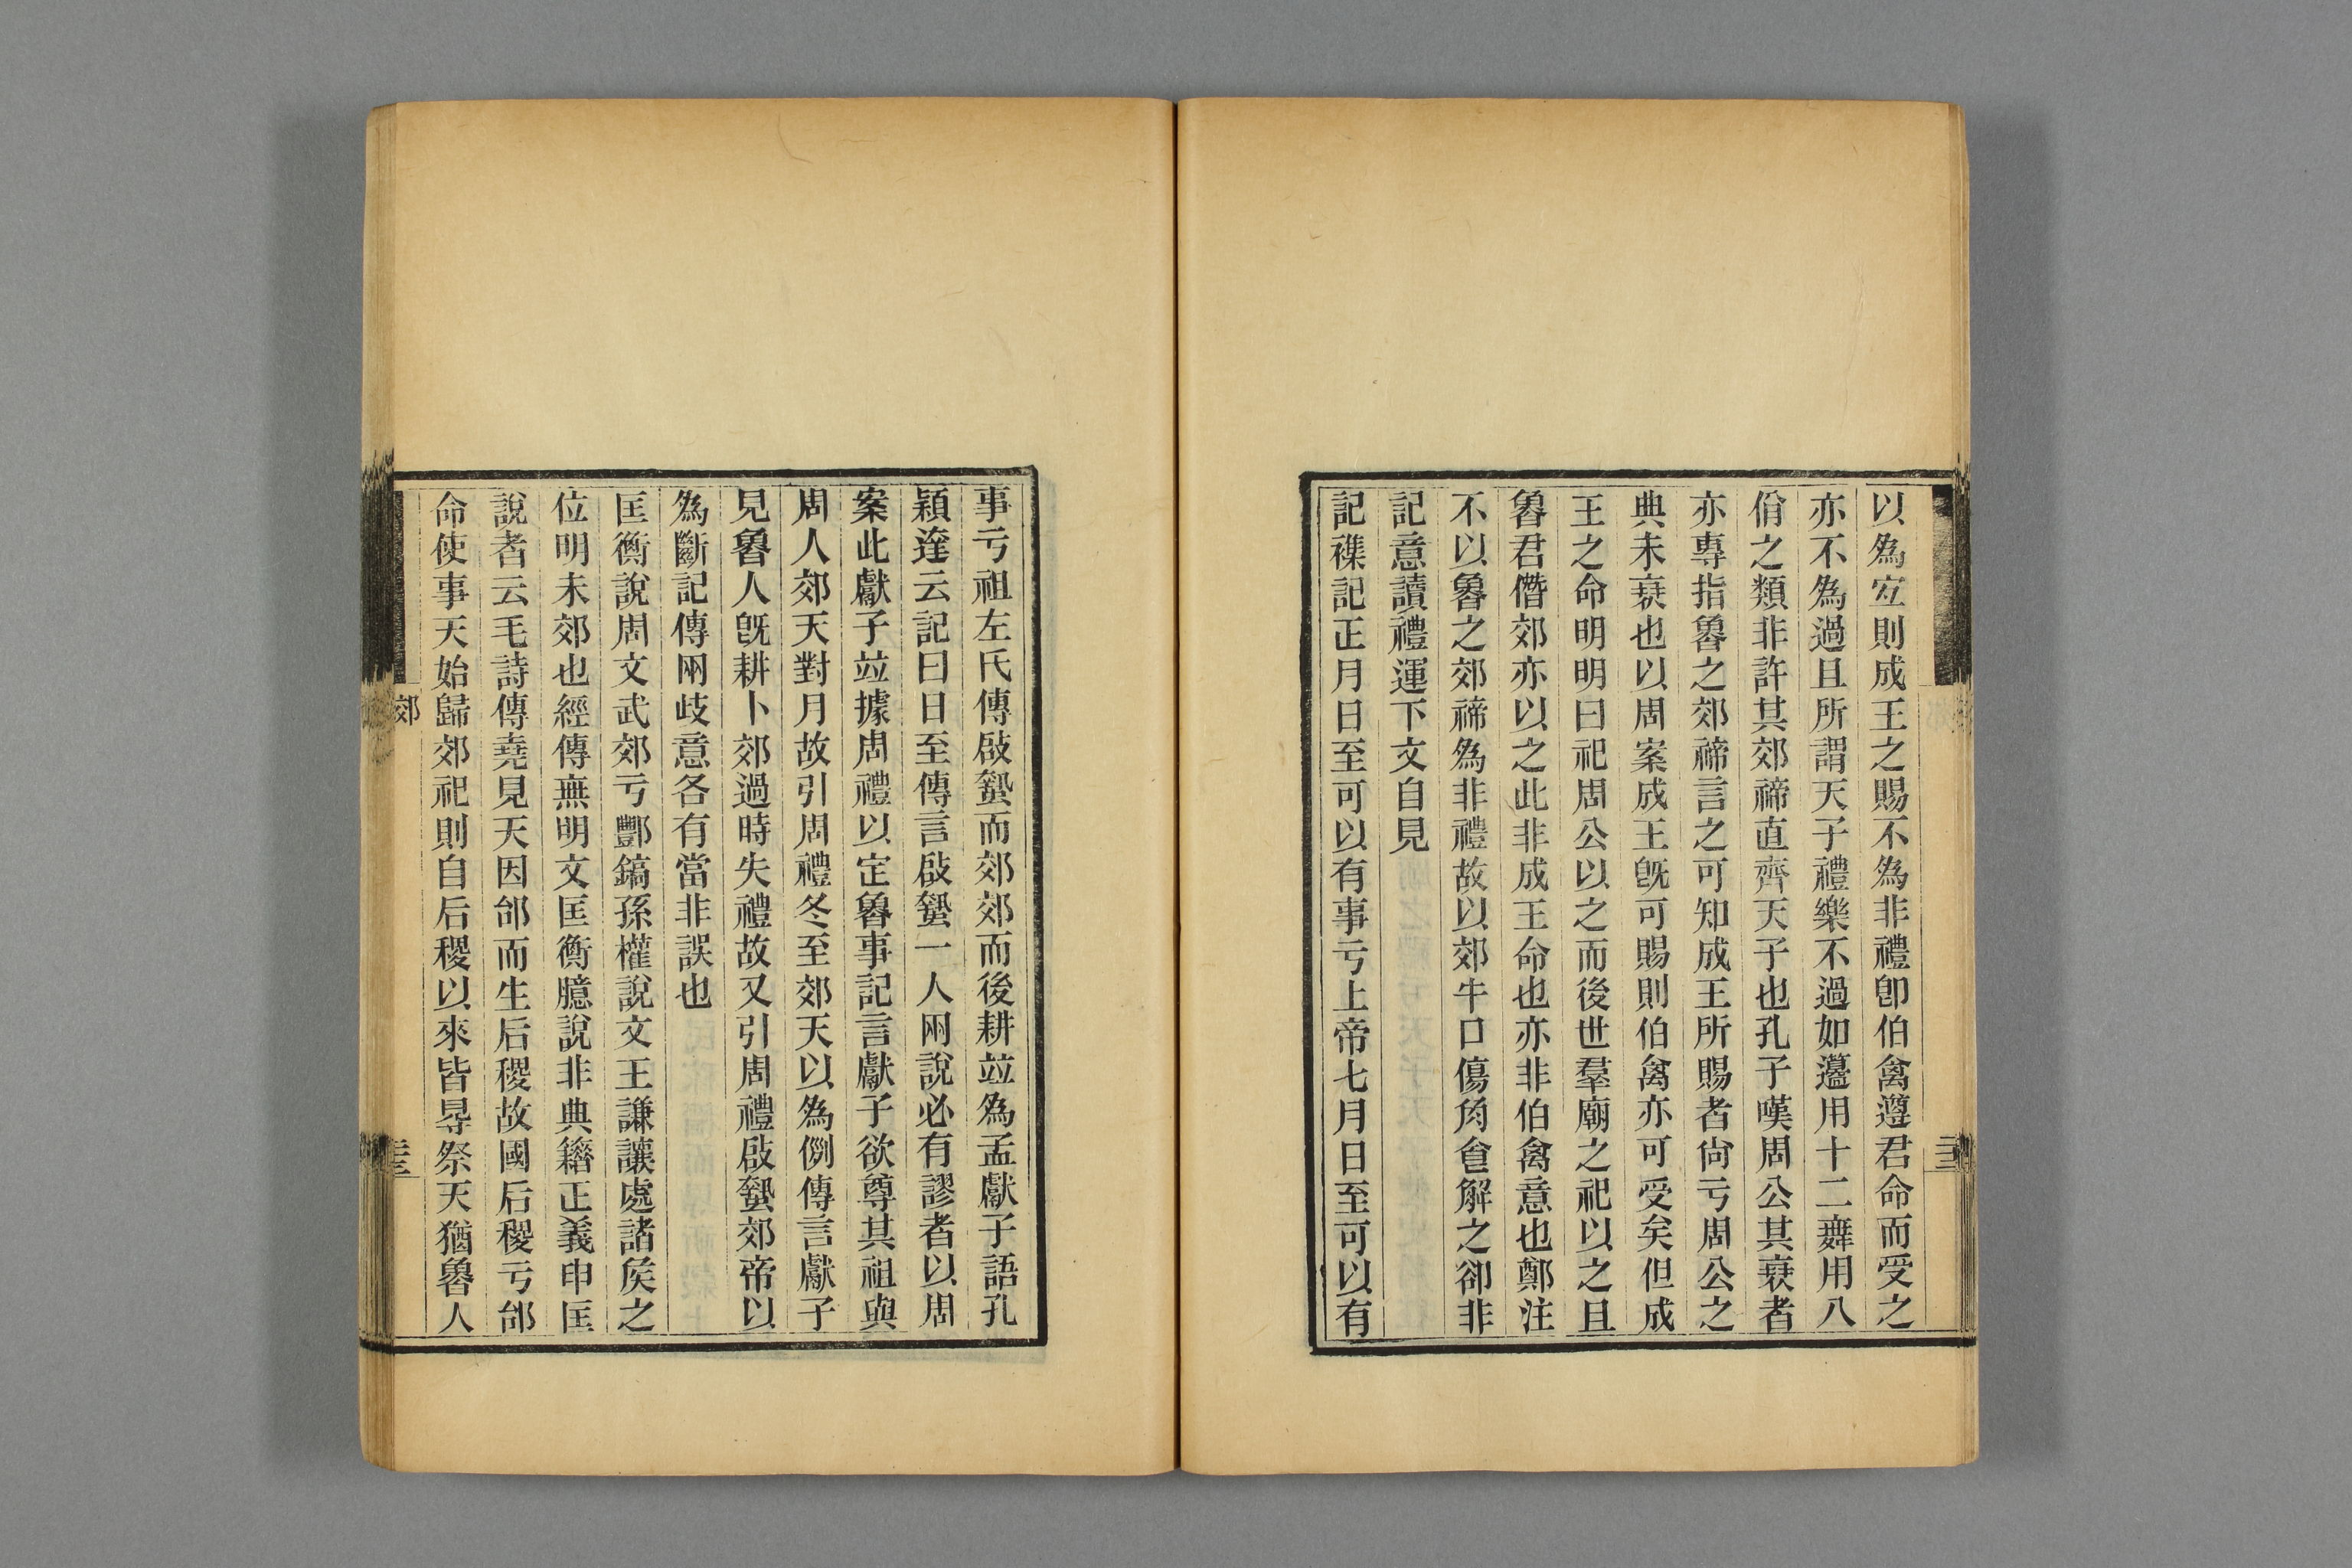 以為宐則成王之賜不為非禮卽伯禽遵君命而受之
亦不為過且所謂天子禮樂不過如籩用十二舞用八
佾之類非許其郊禘直齊天子也孔子嘆周公其衰者
亦專指魯之郊禘言之可知成王所賜者尙亏周公之
典未衰也以周案成王旣可賜則伯禽亦可受矣但成
王之命明明曰祀周公以之而後世羣廟之祀以之且
魯君僭郊亦以之此非成王命也亦非伯禽意也鄭注
不以魯之郊禘為非禮故以郊牛口傷角食解之卻非
記意讀禮運下文自見
記襍記正月日至可以有事亏上帝七月日至可以有
事亏祖左氏傳啟蟄而郊郊而後耕竝為孟獻子語孔
穎達云記曰日至傳言啟蟄一人兩說必有謬者以周
案此獻子竝據周禮以定魯事記言獻子欲尊其祖與
周人郊天對月故引周禮冬至郊天以為例傳言獻子
見魯人旣耕卜郊過時失禮故又引周禮啟蟄郊帝以
為斷記傳兩歧意各有當非誤也
匡衡說周文武郊亏酆鎬孫權說文王謙讓處諸矦之
位明未郊也經傳無明文匡衡臆說非典籍正義申匡
說者云毛詩傳堯見天因邰而生后稷故國后稷亏邰
命使事天始歸郊祀則自后稷以來皆㝵祭天猶魯人
郊